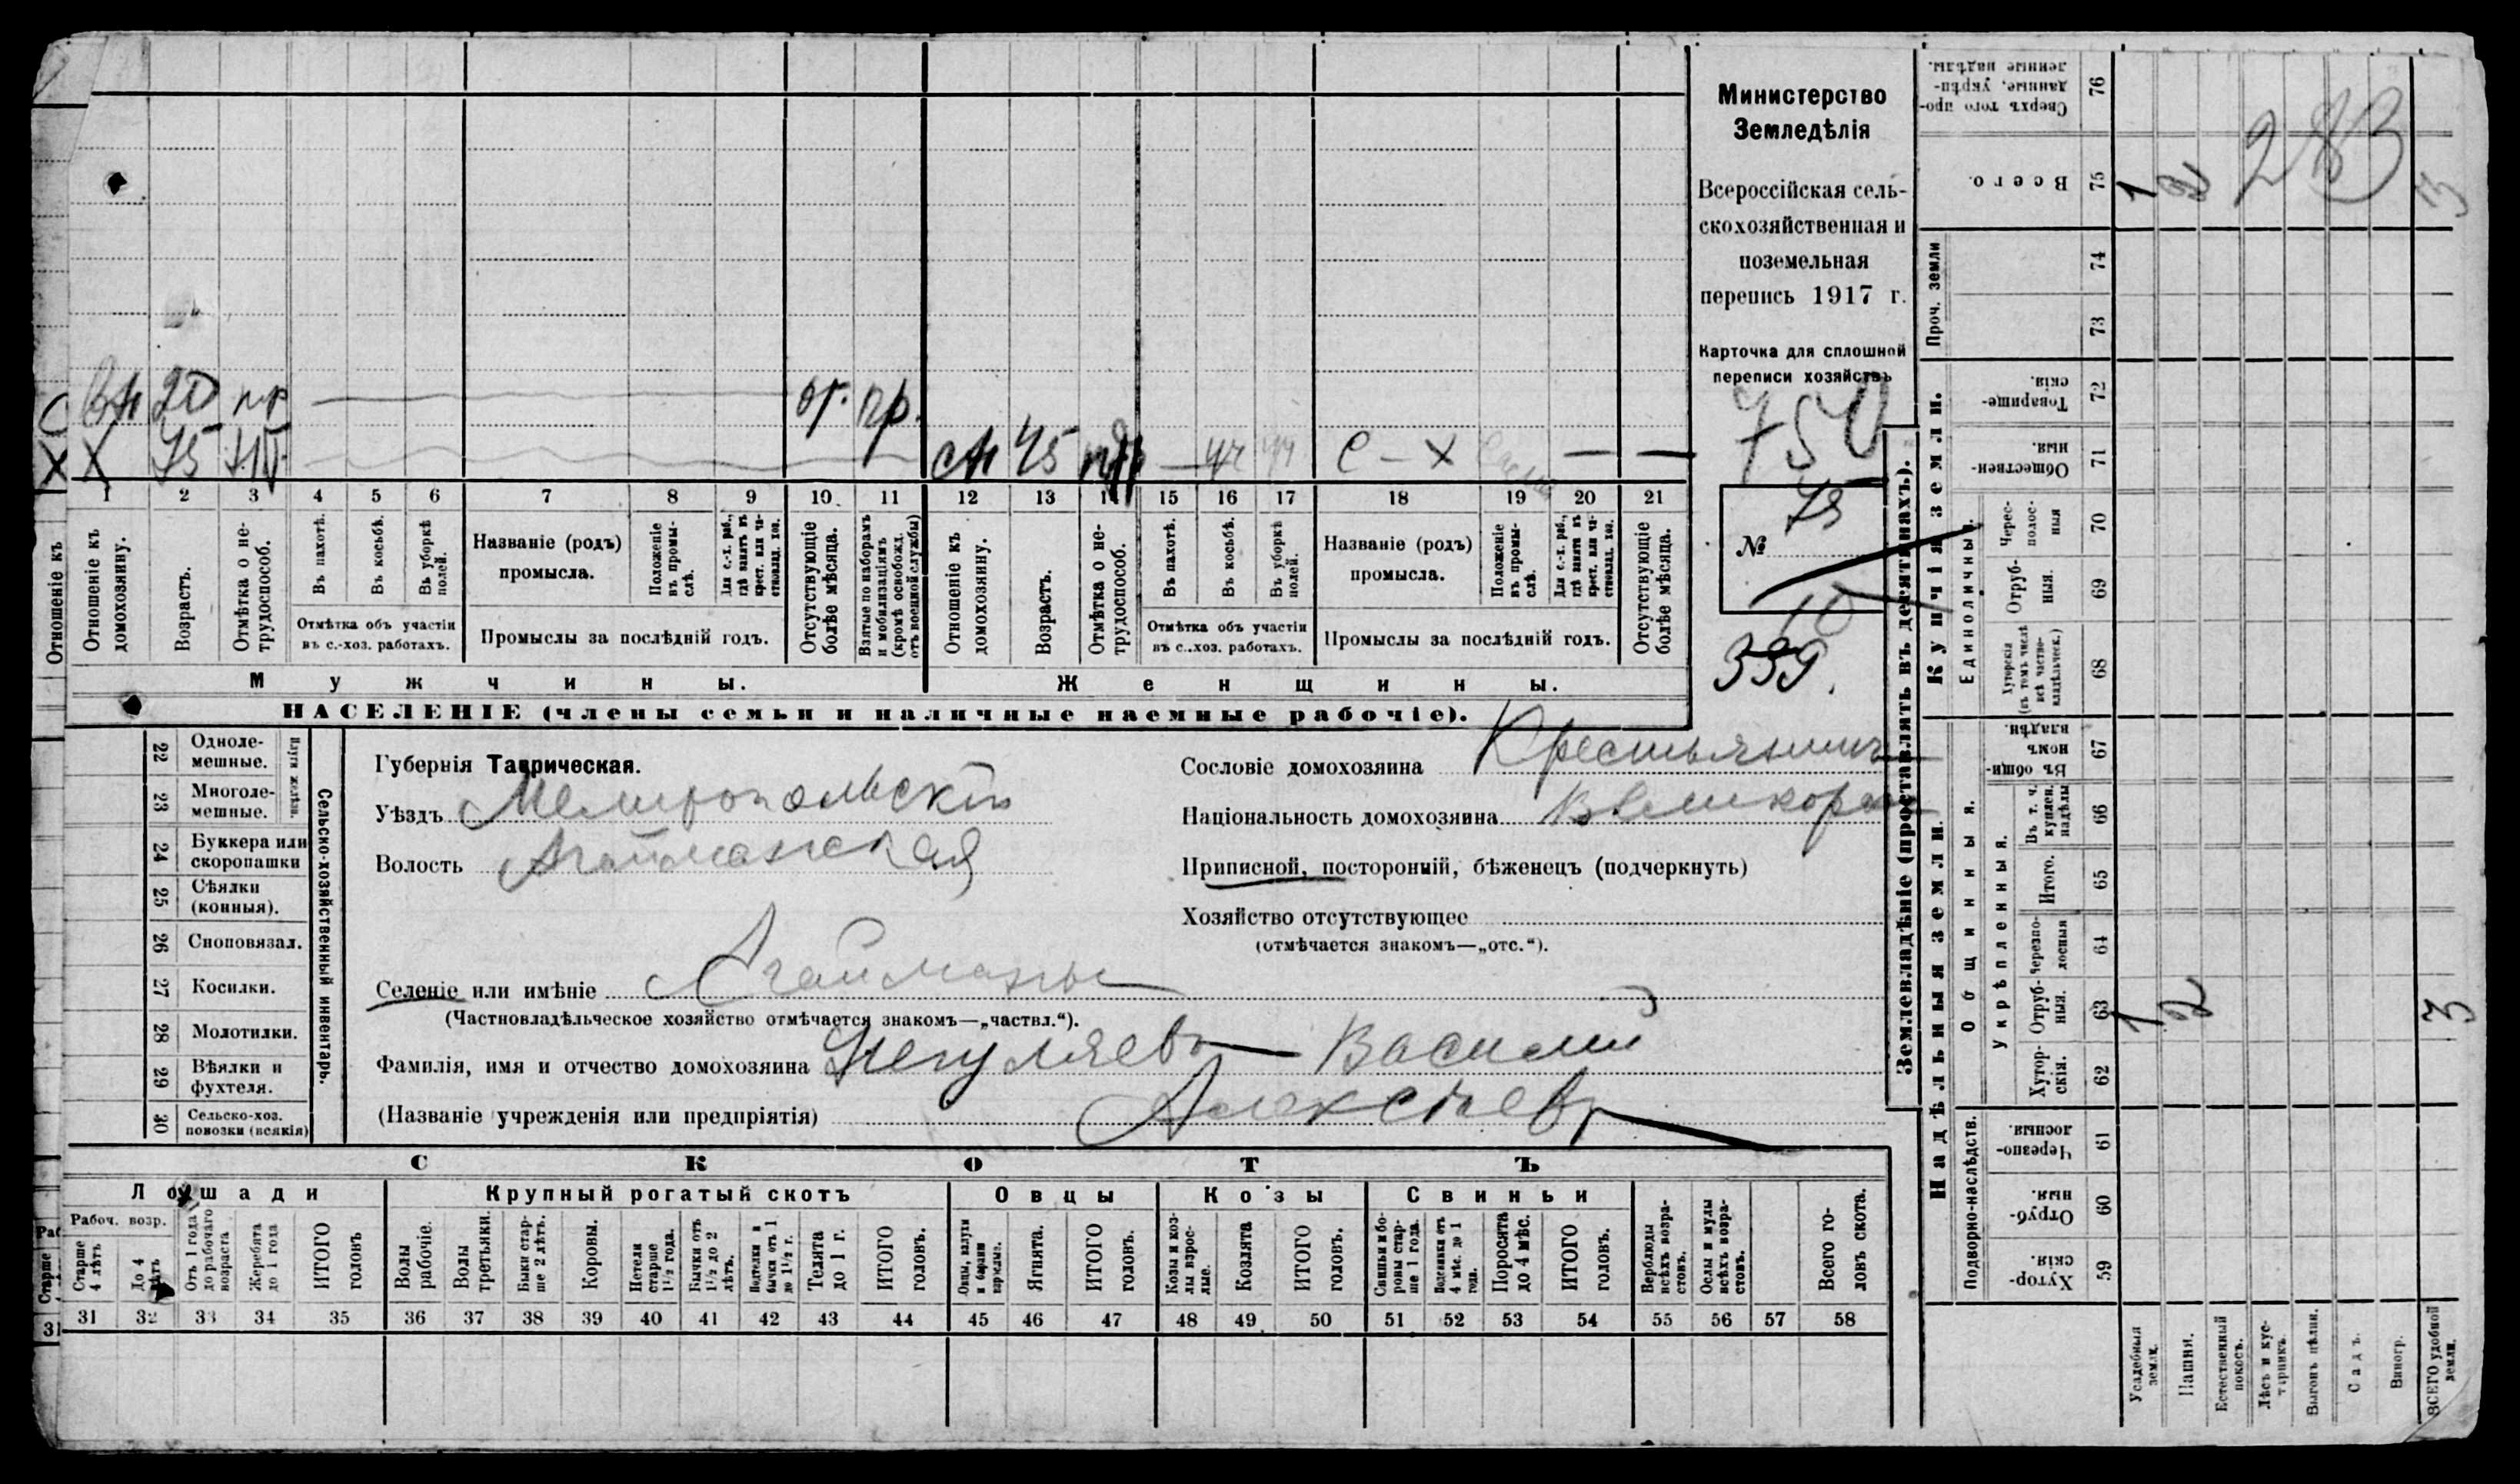 Министерство
Земледѣлія
Всероссійская сель-
скохозяйственная и
поземельная
перепись 1917 г.
Карточка для сплошной
переписи хозяйствъ
750
№ 78
10
339.
вн 20 нр от. пр.
Х 75 сн 45 — уч уч С – Х — —
1 2 3 4 5 6 7 8 9 10 11 12 13 14 15 16 17 18 19 20 21
Отношеніе къ
Отношеніе къ домохозяину.
Возрастъ.
Отмѣтка о не-трудоспособ.
Въ пахотѣ.
Въ косьбѣ.
Въ уборкѣ полей.
Отмѣтка объ участіи
въ с.-хоз. работахъ.
Названіе (родъ)
промысла.
Положеніе въ промы-слѣ.
Для с.-х. раб., гдѣ занятъ въ крест. или ча-стновлад. хоз.
Промыслы за послѣдній годъ.
Отсутствующіе болѣе мѣсяца.
Взятые по наборамъ и мобилизаціямъ (кромѣ освобожд. отъ военной службы)
Отношеніе къ домохозяину.
Возрастъ.
Отмѣтка о не-трудоспособ.
Въ пахотѣ.
Въ косьбѣ.
Въ уборкѣ полей.
Отмѣтка объ участіи
въ с.-хоз. работахъ.
Названіе (родъ)
промысла.
Положеніе въ промы-слѣ.
Для с.-х. раб., гдѣ занята въ крест. или ча-стновлад. хоз.
Промыслы за послѣдній годъ.
Отсутствующіе болѣе мѣсяца.
Мужчины.
Женщины.
НАСЕЛЕНІЕ (члены семьи и наличные наемные рабочіе).
22 Одноле-мешные.
23 Многоле-мешные.
24 Буккера или скоропашки
25 Сѣялки (конныя).
26 Сноповязал.
27 Косилки.
28 Молотилки.
29 Вѣялки и фухтеля.
30 Сельско-хоз. повозки (всякія)
Сельско-хозяйственный инвентарь.
Губернія Таврическая.
Уѣздъ Мелитопольскій
Волость Агайманская
Селеніе или имѣніе Агайманы
(Частновладѣльческое хозяйство отмѣчается знакомъ—„частвл.“).
Фамилія, имя и отчество домохозяина Негуляевъ Василий
(Названіе учрежденія или предпріятія) Алексѣевъ
Сословіе домохозяина Крестьянинъ
Національность домохозяина Великорос
Приписной, посторонній, бѣженецъ (подчеркнуть)
Хозяйство отсутствующее
(отмѣчается знакомъ—„отс.“).
СКОТЪ
Лошади Крупный рогатый скотъ Овцы Козы Свиньи
Рабоч. возр.
Старше 4 лѣтъ
До 4 лѣтъ
Отъ 1 года до рабочаго возраста
Жеребята до 1 года
ИТОГО головъ
Волы рабочіе.
Волы третьяки.
Быки стар-ше 2 лѣтъ.
Коровы.
Нетели старше 1½ года.
Бычки отъ 1½ до 2 лѣтъ.
Подтелки и бычки отъ 1 до 1½ г.
Телята до 1 г.
ИТОГО головъ.
Ягнята.
ИТОГО головъ.
Козы и коз-лы взрос-лые.
Козлята
ИТОГО головъ.
Свиньи и бо-ровы стар-ше 1 года.
Подсвинки отъ 4 мѣс. до 1 года.
Поросята до 4 мѣс.
ИТОГО головъ.
Верблюды всѣхъ возра-стовъ.
Ослы и мулы всѣхъ возра-стовъ.
Всего го-ловъ скота.
31 32 33 34 35 36 37 38 39 40 41 42 43 44 45 46 47 48 49 50 51 52 53 54 55 56 57 58
Землевладѣніе (проставлять въ десятинахъ).
Надѣльныя земли.
Купчія земли.
Проч. земли
Подворно-наслѣдств.
Общинныя.
Укрѣпленныя.
Единоличныя.
Хутор-скія. 59
Отруб-ныя. 60
Черезпо-лосныя. 61
Хутор-скія. 62
Отруб-ныя. 63 1 2 3
Черезпо-лосныя 64
Итого. 65
Въ т. ч. куплен. надѣлы 66
Въ общин-номъ владѣн. 67
Хуторскія (въ томъ числѣ всѣ частно-владѣльческ.) 68
Отруб-ныя. 69
Черес-полос-ныя 70
Обществен-ныя. 71
Товарище-скія. 72
73
74
Всего. 75 1 2 3
Сверхъ того про-данные, укрѣп-ленные надѣлы. 76
283
Усадебныя земли.
Пашня.
Естественный покосъ.
Лѣсъ и кус-тарникъ.
Выгонъ цѣлин.
Садъ.
Виногр.
ВСЕГО удобной земли.